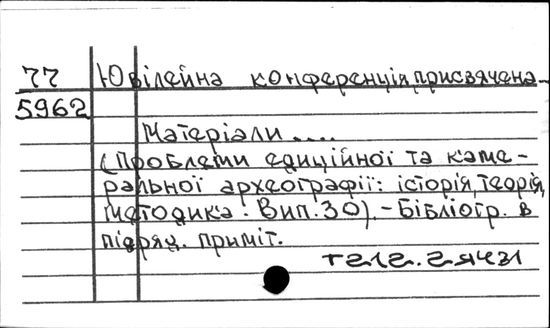 77 Ювілейна конференція, присвячена
5962
Матеріали....
(Проблеми едиційної та каме-
ральної археографії: історія, теорія,
методика: Вип.30).-Бібліогр. в
підряд. приміт.